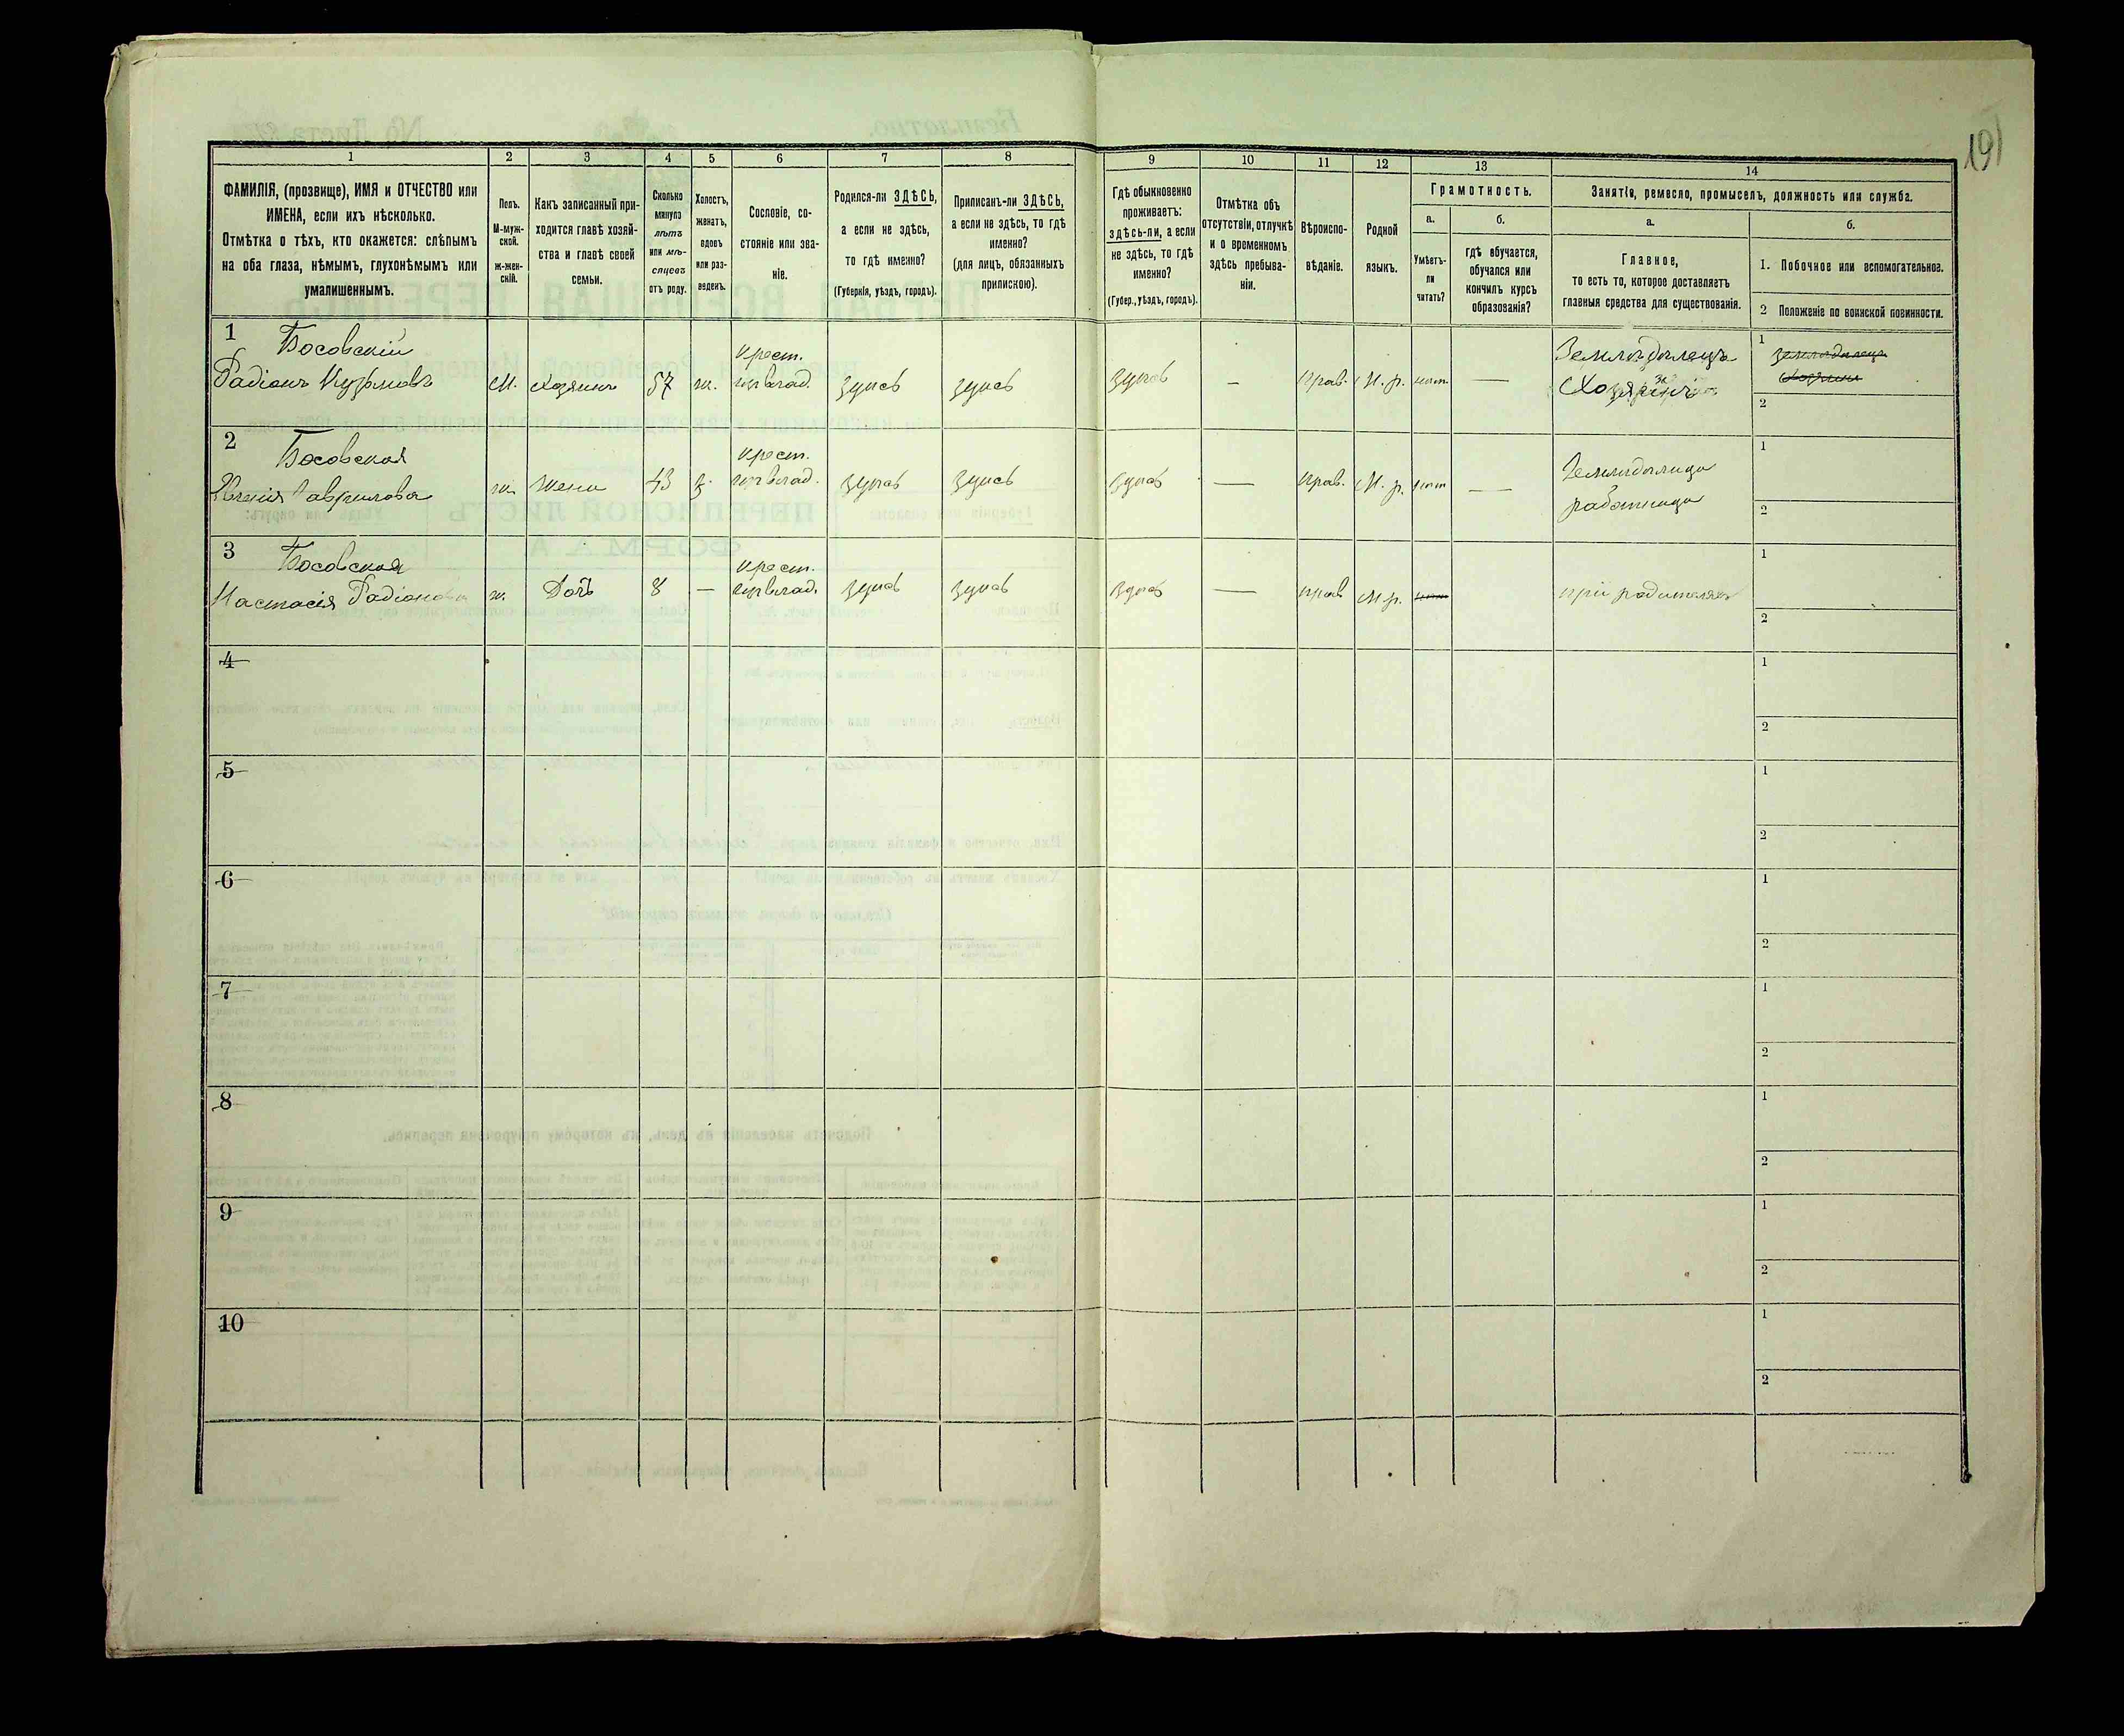 191
1
2
3
4
5
6
7
8
9
10
11
12
13
14
ФАМИЛІЯ, (прозвище), ИМЯ и ОТЧЕСТВО или
ИМЕНА, если ихъ нѣсколько.
Отмѣтка о тѣхъ, кто окажется: слѣпымъ
на оба глаза, нѣмымъ, глухонѣмымъ или
умалишеннымъ.
Полъ.
М-муж-
ской.
ж-жен-
скій.
Какъ записанный при-
ходится главѣ хозяй-
ства и главѣ своей
семьи.
Сколько
минуло
лѣтъ
или мѣ-
сяцевъ
отъ роду.
Холостъ,
женатъ,
вдовъ
или раз-
веденъ.
Сословіе, со-
стояніе или зва-
ніе.
Родился-ли ЗДѢСЬ,
а если не здѣсь,
то гдѣ именно?
(Губернія, уѣздъ, городъ).
Приписанъ-ли ЗДѢСЬ,
а если не здѣсь, то гдѣ
именно?
(для лицъ, обязанныхъ
припискою).
Гдѣ обыкновенно
проживаетъ:
здѣсь-ли, а если
не здѣсь, то гдѣ
именно?
(Губер., уѣздъ, городъ).
Отмѣтка объ
отсутствіи, отлучкѣ
и о временномъ
здѣсь пребыва-
ніи.
Вѣроиспо-
вѣданіе.
Родной
языкъ.
Грамотность.
а.
Умѣетъ-
ли
читать?
б.
гдѣ обучается,
обучался или
кончилъ курсъ
образованія?
Занятія, ремесло, промыселъ, должность или служба.
а.
Главное,
то есть то, которое доставляетъ
главныя средства для существованія.
б.
1. Побочное или вспомогательное.
2 Положеніе по воинской повинности.
1 Босовскій
Радіонъ Кузьмовъ
М. хозяинъ 57 ж. крест.
здѣсь здѣсь здѣсь — прав. М. р. нѣт — Земледѣлецъ
Хозяинъ
1 земледѣлецъ
хозяинъ
2
2 Босовская
Гаврилова
ж. жена 43 з. крест.
здѣсь здѣсь здѣсь — прав. М. р. нѣт — Земледѣлица
работница
1
2
3 Босовская
Настасія Радіонова
ж. Дочь 8 — крест.
здѣсь здѣсь здѣсь — прав М. р. нѣт
при родителях
1
2
4
1
2
5
1
2
6
1
2
7
1
2
8
1
2
9
1
2
10
1
2